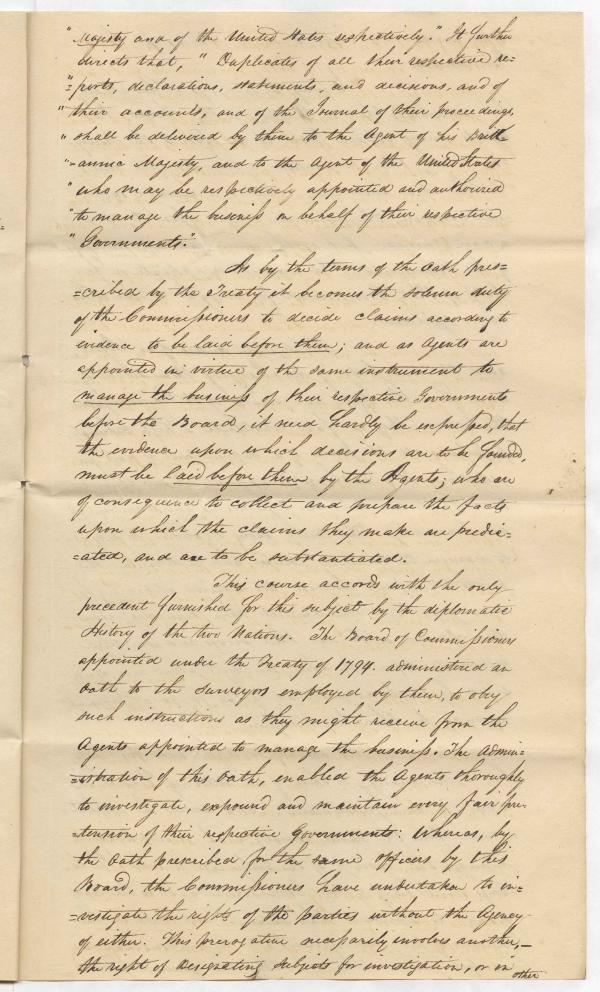 " Majesty and of the United States respectively." It further
directs that, " Duplicates of all their respective re-
"=ports, declarations, statements, and decisions, and of
" their accounts, and of the Journal of their proceedings,
" shall be delivered by them to the Agent of his Britt-
"=annic Majesty, and to the Agent of the United States
" who may be respectively appointed and authorized
" to manage the business on behalf of their respective
" Governments".
As by the terms of the oath pres=
=cribed by the Treaty it becomes the solemn duty
of the Commissioners to decide claims according to
evidence to be laid before them; and as Agents are
appointed in virtue of the same instrument to
manage the business of their respective Governments
before the Board, it need hardly be expressed, that
the evidence upon which decisions are to be founded,
must be laid before them by the Agents; who are
of consequence to collect and prepare the facts
upon which the claims they make are predic=
=ated, and are to be substantiated.
This course accords with the only
precedent furnished for this subject by the diplomatic
History of the two Nations. The Board of Commissioners
appointed under the Treaty of 1794. administered an
oath to the surveyors employed by them, to obey
such instructions as they might receive from the
Agents appointed to manage the business. The admin=
=istration of this oath, enabled the Agents thoroughly
to investigate, expound and maintain every fair pre-
=tension of their respective Governments: Whereas, by
the oath prescribed for the same officers by this
Board, the Commissioners have undertaken to in=
=vestigate the rights of the parties without the Agency
of either. This prerogative necessarily involves another,—
the right of designating subjects for investigation, or in
other